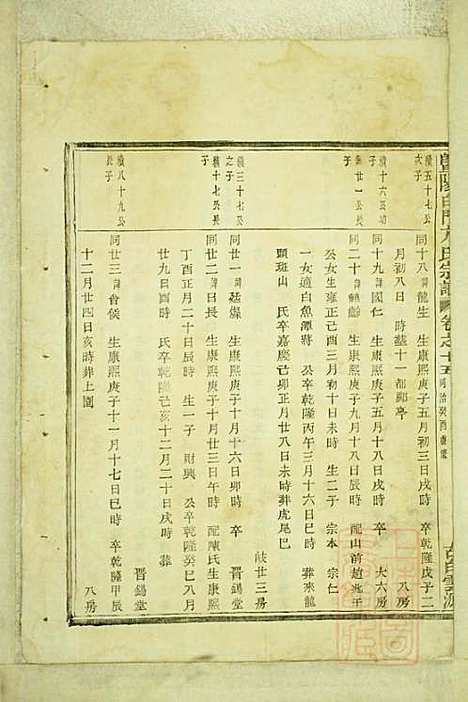 暨陽白門方氏宗譜 卷之十五 同治癸酉歲鐫
續五十七公次子
同十八諱龍生 生康熙庚子五月初三日戌時 卒乾隆戊子二
月初八日 時葬十一都鄭亭 八房
續十六公幼子
同十九諱國仁 生康熙庚子五月十八日戌時 卒 大六房
公長子
同二十諱 生康熙庚子九月十八日辰時 配山前趙兆千
公女生雍正己酉三月初十日未時 生二子 宗本 宗仁
一女適白魚潭蔣 公卒乾隆丙午三月十六日巳時 葬來龍
頭斑山 氏卒嘉慶己卯正月廿八日未時葬虎尾巴 岐廿三房
續三十七公之子
同廿一諱 生康熙庚子十月十六日卯時 卒 晋錫堂
續十七公長子
同廿二諱日長 生康熙庚子十月廿三日午時 配陳氏生康熙
丁酉正月二十日辰時 生一子 財興 公卒乾隆癸巳八月
廿九日酉時 氏卒乾隆己亥十二月二十日戌時 葬 晋錫堂
續八十九公長子
同廿三諱 生康熙庚子十一月十七日巳時 卒乾隆甲辰
十二月廿四日亥時葬上園 八房